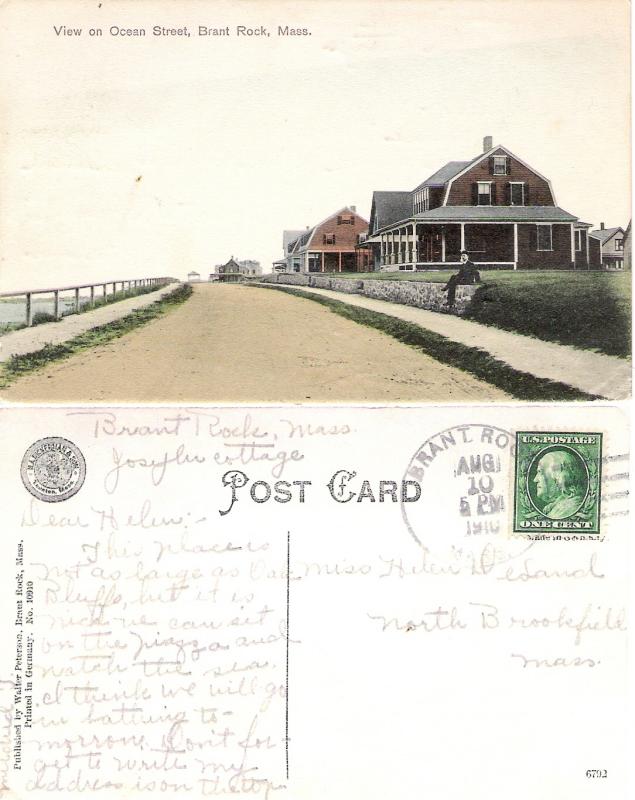 View on Ocean Street, Brant Rock, Mass.
Brant Rock, Mass.
Joseph cottage
POST CARD
BRANT ROC
AUG
10
5 PM
1910
U.S. POSTAGE
ONE CENT
Dear Helen:-
This place is
not as large as Oak
Bluffs, but it is
nice we can sit
on the piazza and
watch the sea.
I think we will go
in bathing to-
morrow. Don't for
get to write my
address is on the top
Mildred
Miss Helen
North Brookfield
Mass.
Published by Walter Peterson, Brant Rock, Mass.
Printed in Germany. No. 10910
6792